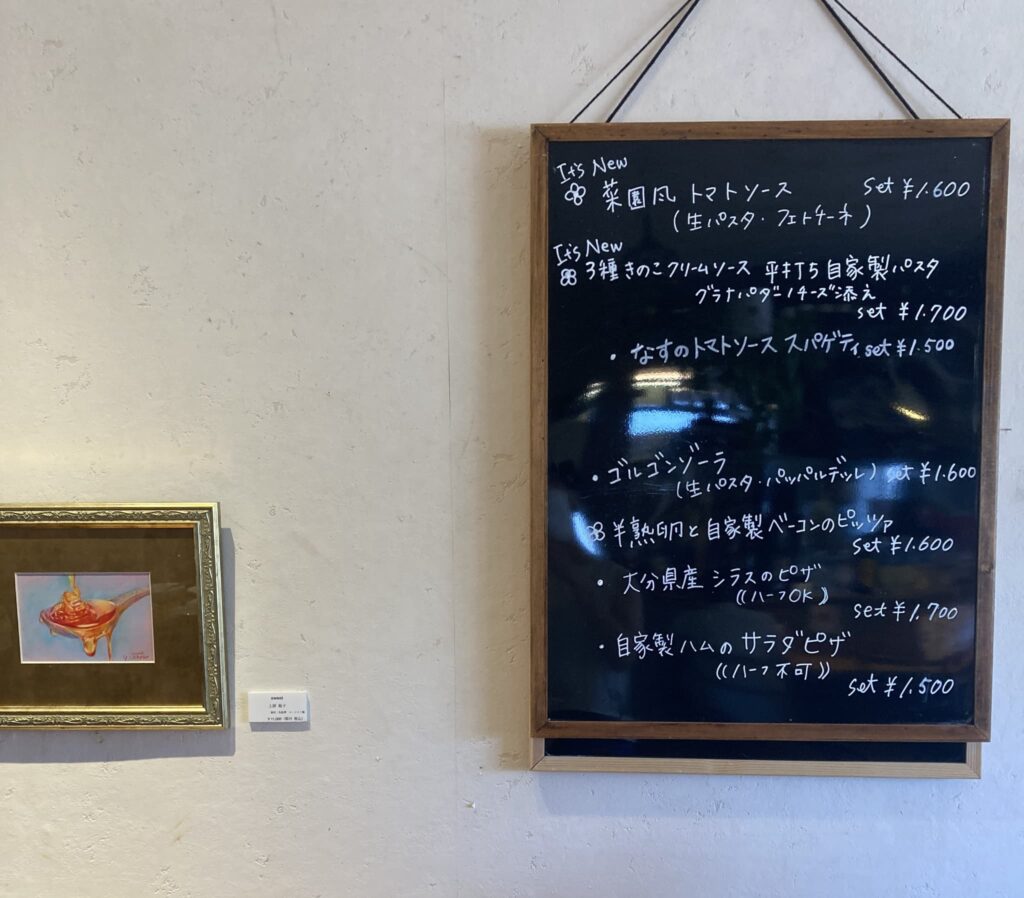 It's New
菜園風 トマトソース set ¥1.600
(生パスタ・フェトチーネ)
It's New
3種きのこクリームソース 平打ち自家製パスタ
グラナパダーノチーズ添え
set ¥1.700
・なすのトマトソース スパゲティ set ¥1.500
・ゴルゴンゾーラ
(生パスタ・パッパルデッレ) set ¥1.600
半熟卵と自家製ベーコンのピッツァ
set ¥1.600
・大分県産 シラスのピザ
((ハーフOK))
set ¥1.700
・自家製ハムのサラダピザ
((ハーフ不可))
set ¥1.500
sweet